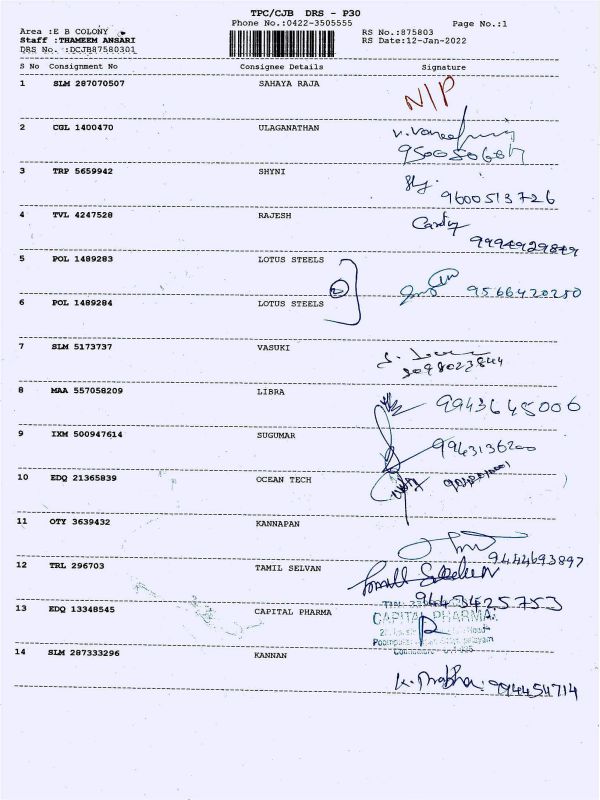 TPC/CJB DRS - P30
Phone No.:0422-3505555
Page No.:1
Area :E B COLONY
Staff :THAMEEM ANSARI
DRS No. :DCJB87580301
RS No.:875803
RS Date:12-Jan-2022
S No Consignment No Consignee Details Signature
1 SLM 287070507 SAHAYA RAJA
N/P
2 CGL 1400470 ULAGANATHAN
3 TRP 5659942 SHYNI
9600513726
4 TVL 4247528 RAJESH
5 POL 1489283 LOTUS STEELS
2
9566420250
6 POL 1489284 LOTUS STEELS
7 SLM 5173737 VASUKI
8 MAA 557058209 LIBRA
9943645006
9 IXM 500947614 SUGUMAR
9943136200
10 EDQ 21365839 OCEAN TECH
11 OTY 3639432 KANNAPAN
9444693897
12 TRL 296703 TAMIL SELVAN
9443425753
13 EDQ 13348545 CAPITAL PHARMA
CAPITAL PHARMA
14 SLM 287333296 KANNAN
K. Prabha. 994454714